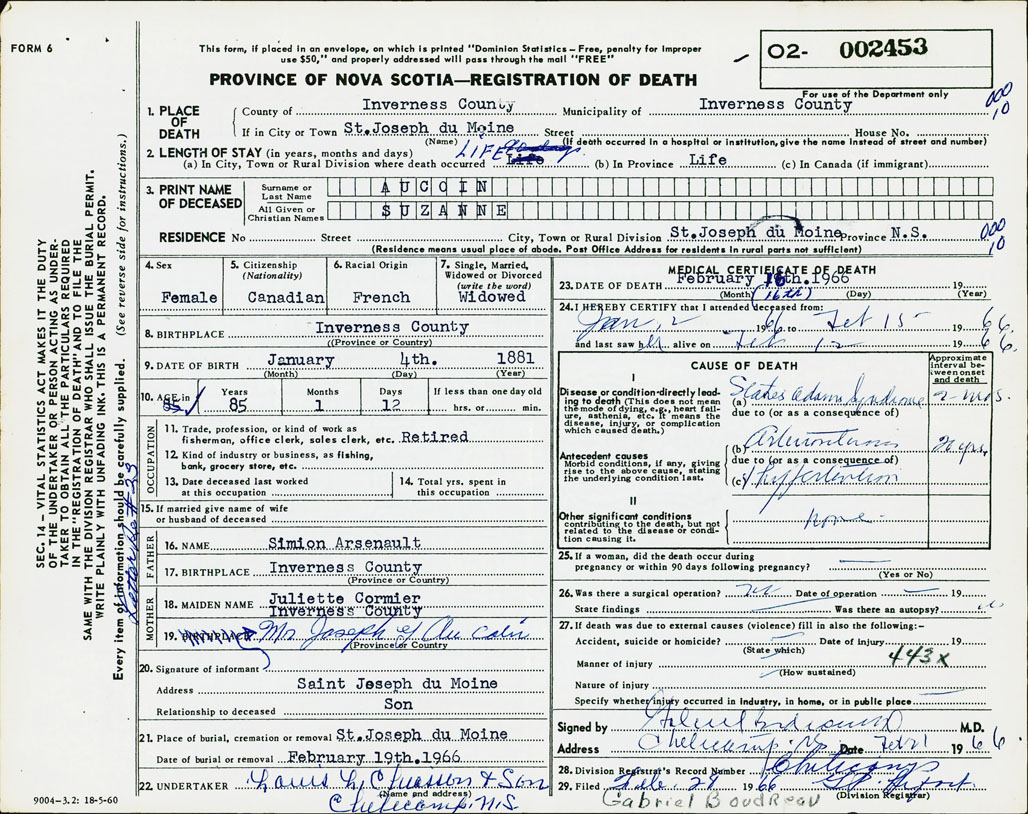 FORM 6
This form, if placed in an envelope, on which is printed "Dominion Statistics – Free, penalty for improper
use $50," and properly addressed will pass through the mail "FREE"
PROVINCE OF NOVA SCOTIA—REGISTRATION OF DEATH
02- 002453
For use of the Department only
1. PLACE OF DEATH
County of Inverness County Municipality of Inverness County
000
10
If in City or Town St.Joseph du Moine Street House No.
(Name) (If death occurred in a hospital or institution, give the name instead of street and number)
2. LENGTH OF STAY (in years, months and days)
(a) In City, Town or Rural Division where death occurred LIFE Life (b) In Province Life (c) In Canada (if immigrant)
3. PRINT NAME OF DECEASED
Surname or Last Name AUCOIN
All Given or Christian Names SUZANNE
RESIDENCE No Street City, Town or Rural Division St.Joseph du Moine Province N.S.
000
10
(Residence means usual place of abode. Post Office Address for residents in rural parts not sufficient)
4. Sex
Female
5. Citizenship
(Nationality)
Canadian
6. Racial Origin
French
7. Single, Married,
Widowed or Divorced
(write the word)
Widowed
8. BIRTHPLACE Inverness County
(Province or Country)
9. DATE OF BIRTH January 4th. 1881
(Month) (Day) (Year)
10. AGE in
85
Years
85
Months
1
Days
12
If less than one day old
hrs. or min.
OCCUPATION
11. Trade, profession, or kind of work as
fisherman, office clerk, sales clerk, etc. Retired
12. Kind of industry or business, as fishing,
bank, grocery store, etc.
13. Date deceased last worked
at this occupation
14. Total yrs. spent in
this occupation
15. If married give name of wife
or husband of deceased
FATHER
16. NAME Simion Arsenault
17. BIRTHPLACE Inverness County
(Province or Country)
MOTHER
18. MAIDEN NAME Juliette Cormier
Inverness County
19. BIRTHPLACE Mr Joseph
(Province or Country)
20. Signature of informant
Address Saint Joseph du Moine
Relationship to deceased Son
21. Place of burial, cremation or removal St.Joseph du Moine
Date of burial or removal February 19th.1966
22. UNDERTAKER Louis L. Chiasson & Son
(Name and address)
Cheticamp, N.S.
9004-3.2: 18-5-60
MEDICAL CERTIFICATE OF DEATH
23. DATE OF DEATH February 16th.1966 19
(Month) (16th) (Day) (Year)
24. I HEREBY CERTIFY that I attended deceased from:
Jan. 2 1966 to Feb 15 1966
and last saw her alive on Feb 15 1966
CAUSE OF DEATH
Approximate
interval be-
tween onset
and death
I
Disease or condition directly lead-
ing to death (This does not mean
the mode of dying, e.g., heart fail-
ure, asthenia, etc. It means the
disease, injury, or complication
which caused death.)
(a) Stokes Adams Syndrome 2 mos.
due to (or as a consequence of)
Antecedent causes
Morbid conditions, if any, giving
rise to the above cause, stating
the underlying condition last.
(b)
due to (or as a consequence of)
(c) Hypertention
II
Other significant conditions
contributing to the death, but not
related to the disease or condi-
tion causing it.
none
25. If a woman, did the death occur during
pregnancy or within 90 days following pregnancy?
(Yes or No)
26. Was there a surgical operation? no Date of operation 19
State findings Was there an autopsy? no
27. If death was due to external causes (violence) fill in also the following:-
Accident, suicide or homicide? Date of injury 19
(State which)
443x
Manner of injury
(How sustained)
Nature of injury
Specify whether injury occurred in Industry, in home, or in public place
Signed by M.D.
Address Cheticamp, N.S. Date Feb 21 1966
28. Division Registrar's Record Number Cheticamp
29. Filed Feb. 28 1966
(Division Registrar)
Gabriel Boudreau
SEC. 14 – VITAL STATISTICS ACT MAKES IT THE DUTY
OF THE UNDERTAKER OR PERSON ACTING AS UNDER-
TAKER TO OBTAIN ALL THE PARTICULARS REQUIRED
IN THE "REGISTRATION OF DEATH" AND TO FILE THE
SAME WITH THE DIVISION REGISTRAR WHO SHALL ISSUE THE BURIAL PERMIT.
WRITE PLAINLY WITH UNFADING INK. THIS IS A PERMANENT RECORD.
Every item of information should be carefully supplied. (See reverse side for instructions.)